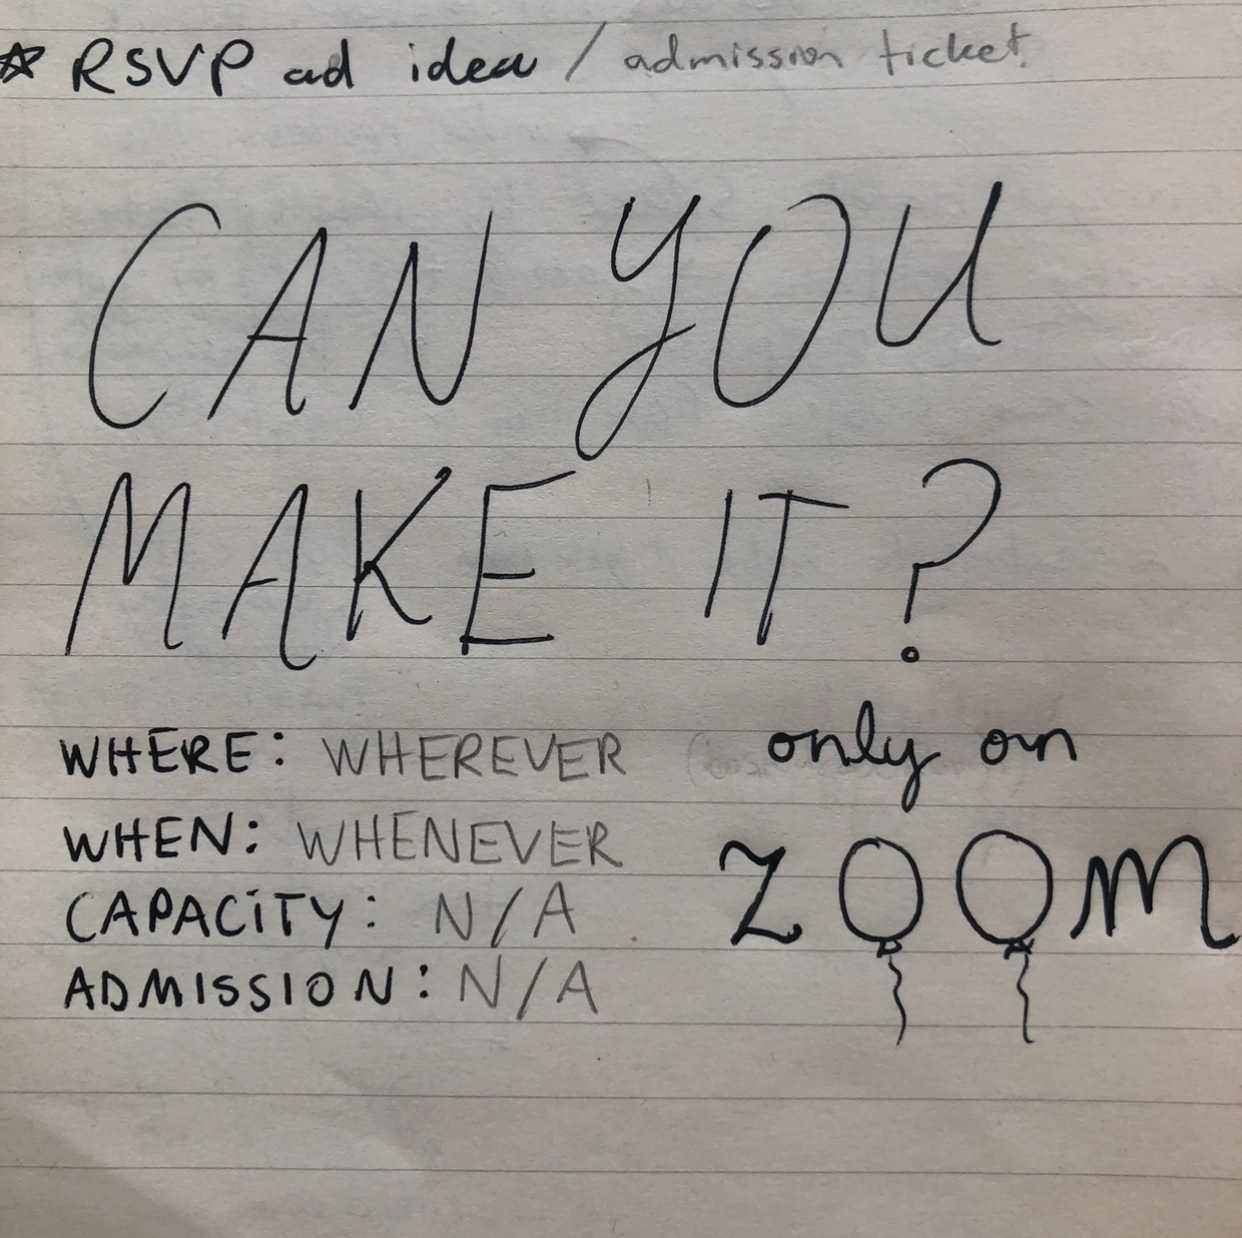 ☆ RSVP ad idea / admission ticket
CAN YOU
MAKE IT?
WHERE: WHEREVER
WHEN: WHENEVER
CAPACITY: N/A
ADMISSION: N/A
only on
ZOOM